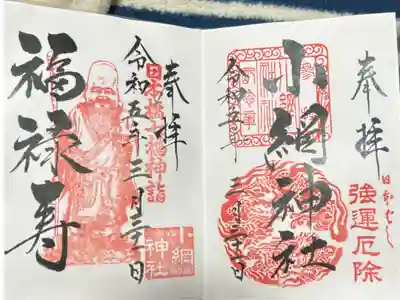 奉拝
日本ばし
強運厄除
小網神社
令和五年
三月
奉拝
日本橋七福神詣
令和五年三月
福禄寿
小網
神社